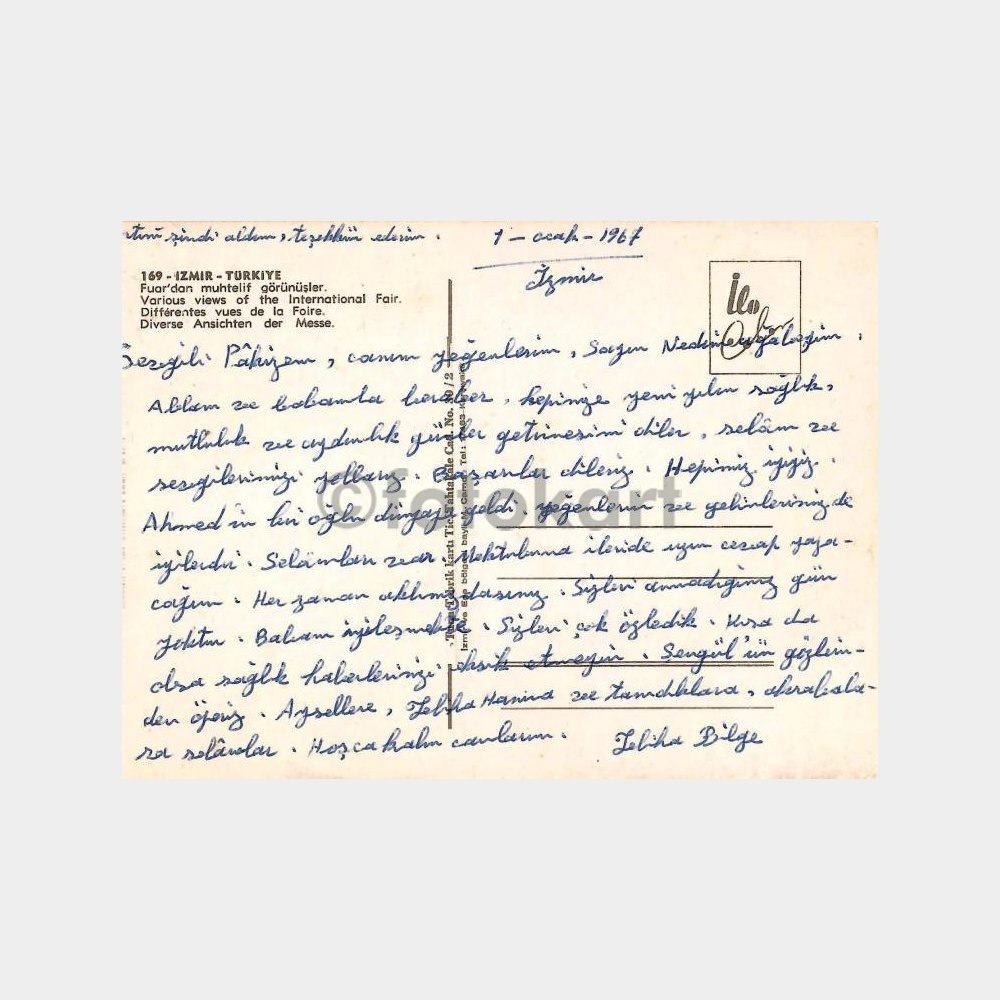 şimdi aldım, teşekkür ederim.
1 - ocak - 1967
İzmir
169 - İZMİR - TÜRKİYE
Fuar'dan muhtelif görünüşler.
Various views of the International Fair.
Différentes vues de la Foire.
Diverse Ansichten der Messe.
Sevgili Pâkizem, canım yeğenlerim, Sayın Nedim ağabeyim,
Ablam ve babamla beraber, hepinize yeni yılın sağlık,
mutluluk ve aydınlık günler getirmesini diler, selâm ve
sevgilerimizi yollarız. Başarılar dileriz. Hepimiz iyiyiz.
Ahmed'in bir oğlu dünyaya geldi. Yeğenlerin ve gelinlerimiz de
iyilerdir. Selâmları var. Mektubuna ileride uzun cevap yaza-
cağım. Her zaman aklımızdasınız. Sizleri anmadığımız gün
yoktur. Babam iyileşmekte. Sizleri çok özledik. Kısa da
olsa sağlık haberlerinizi eksik etmeyin. Şengül'ün gözlerin-
den öperiz. Aysellere, Hanıma ve tanıdıklara, akrabala-
ra selâmlar. Hoşca kalın canlarım.
Bilge
©fotokart